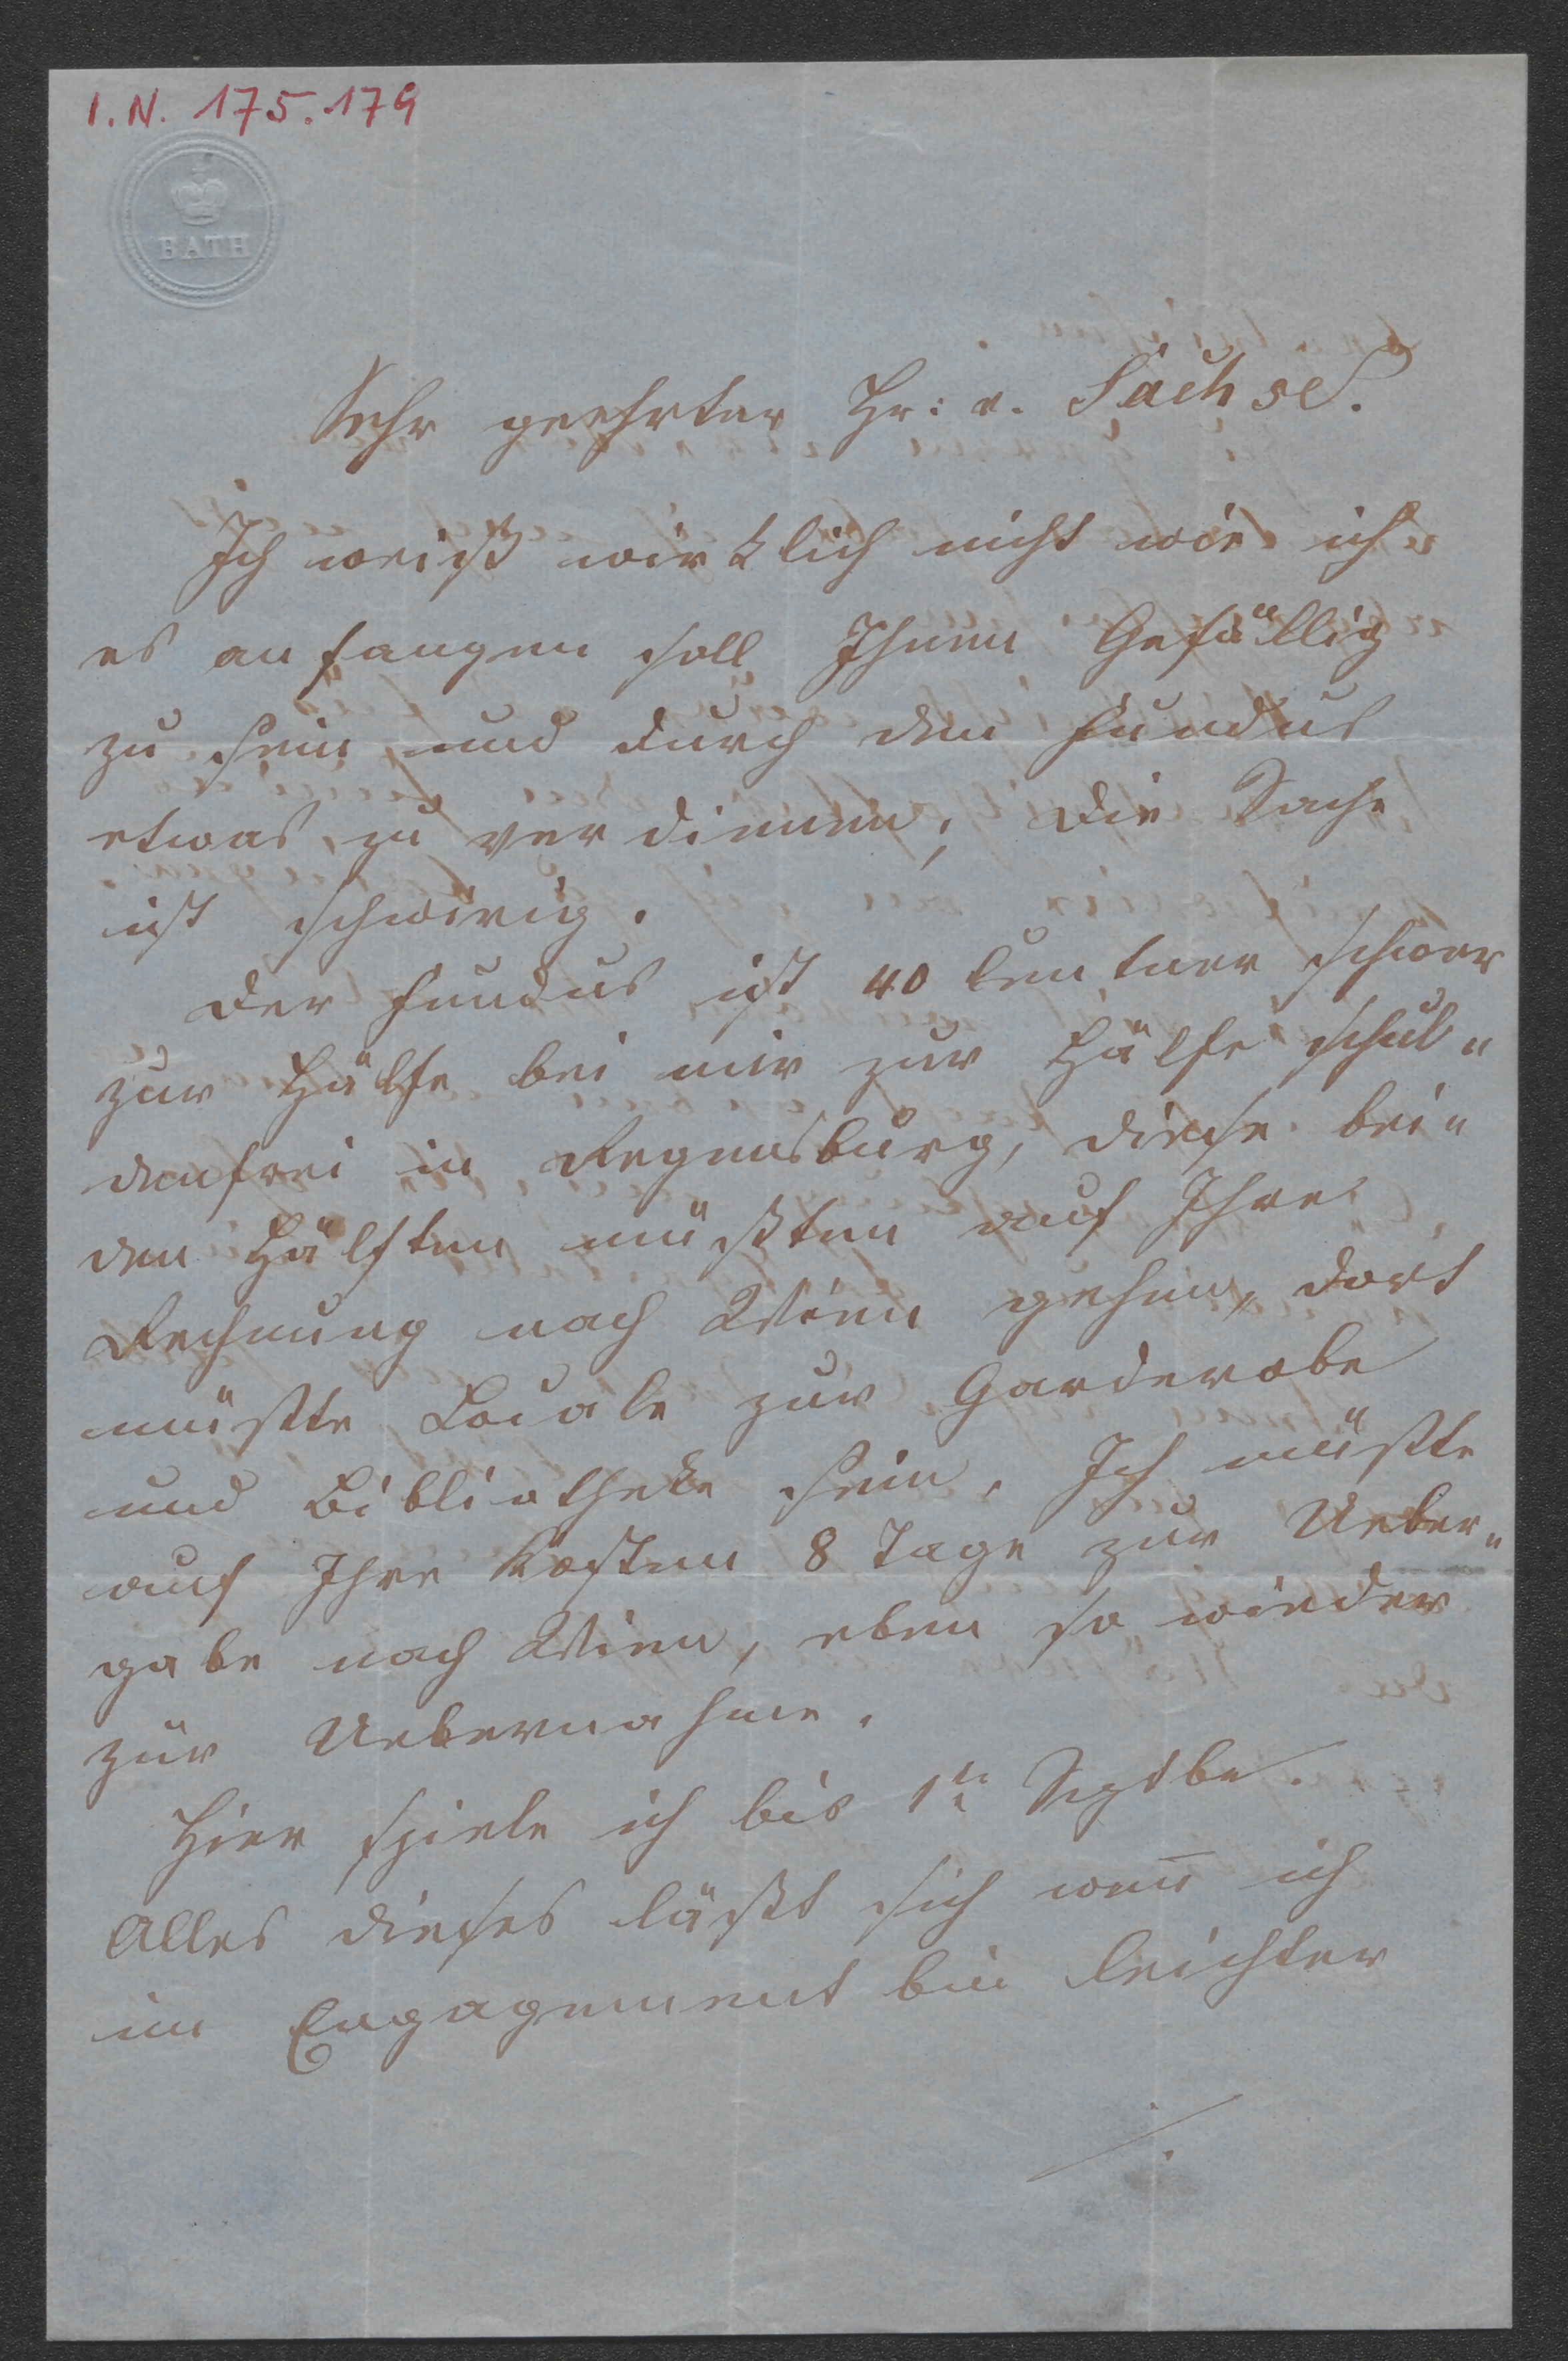 I.N. 175.179
BATH
Sehr geehrter Hr: v. Sachse.
Ich weiß wirklich nicht wie ich
es anfangen soll Ihnen Gefällig
zu sein und durch den Fundus
etwas zu verdienen; die Sache
ist schwirig.
Der Fundus ist 40 Centner schwer
zur Hälfte bei mir zur Hälfte schul„
denfrei in Regensburg, diese bei„
den Hälften müßten auf Ihre
Rechnung nach Wien gehen, dort
müßte Locale zur Garderobe
und Bibliotheke sein. Ich müßte
auf Ihre Kosten 8 Tage zur Ueber„
gabe nach Wien, eben so wieder
zur Uebernahme.
Hier spiele ich bis 1tn Septbr.
Alles dieses läßt sich wenn̄ ich
im Engagement bin leichter
./.